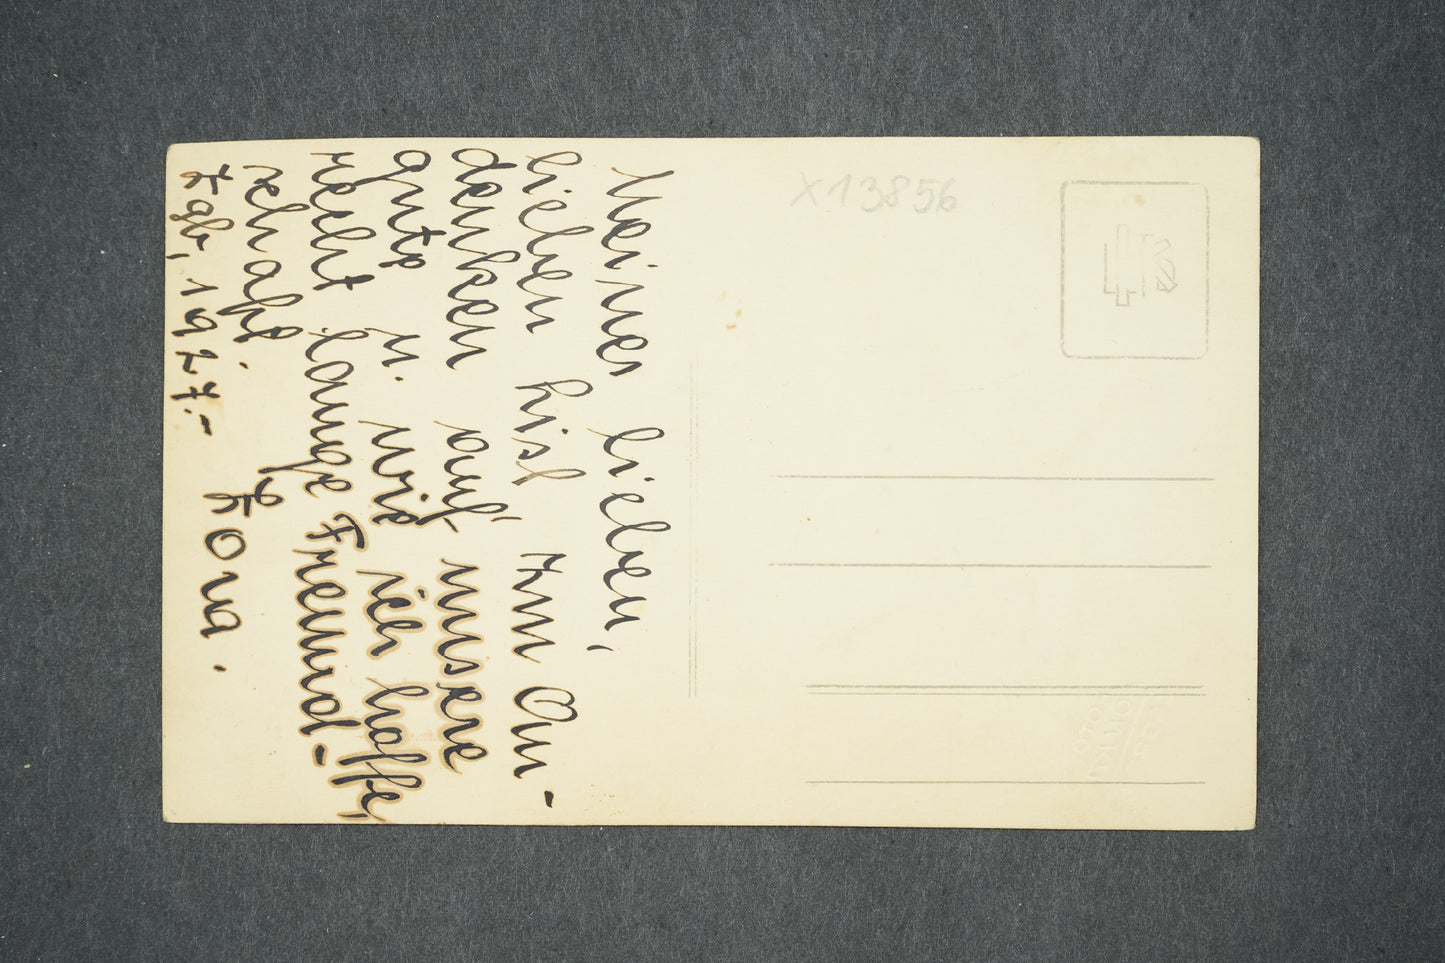 Meiner lieben,
lieben Lisl zum An-
denken auf unsere
gute u. wie ich hoffe,
recht lange Freund-
schaft.
Zgb, 1927.-
Zora.
X13856